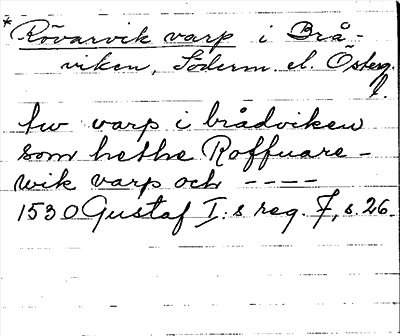 *Rövarvik varp i Brå-
viken, Söderm. el. Österg.
f.
tw varp i brådviken
som hethe Roffuare-
wik varp och ----
1530 Gustaf I:s reg. 7, s. 26.